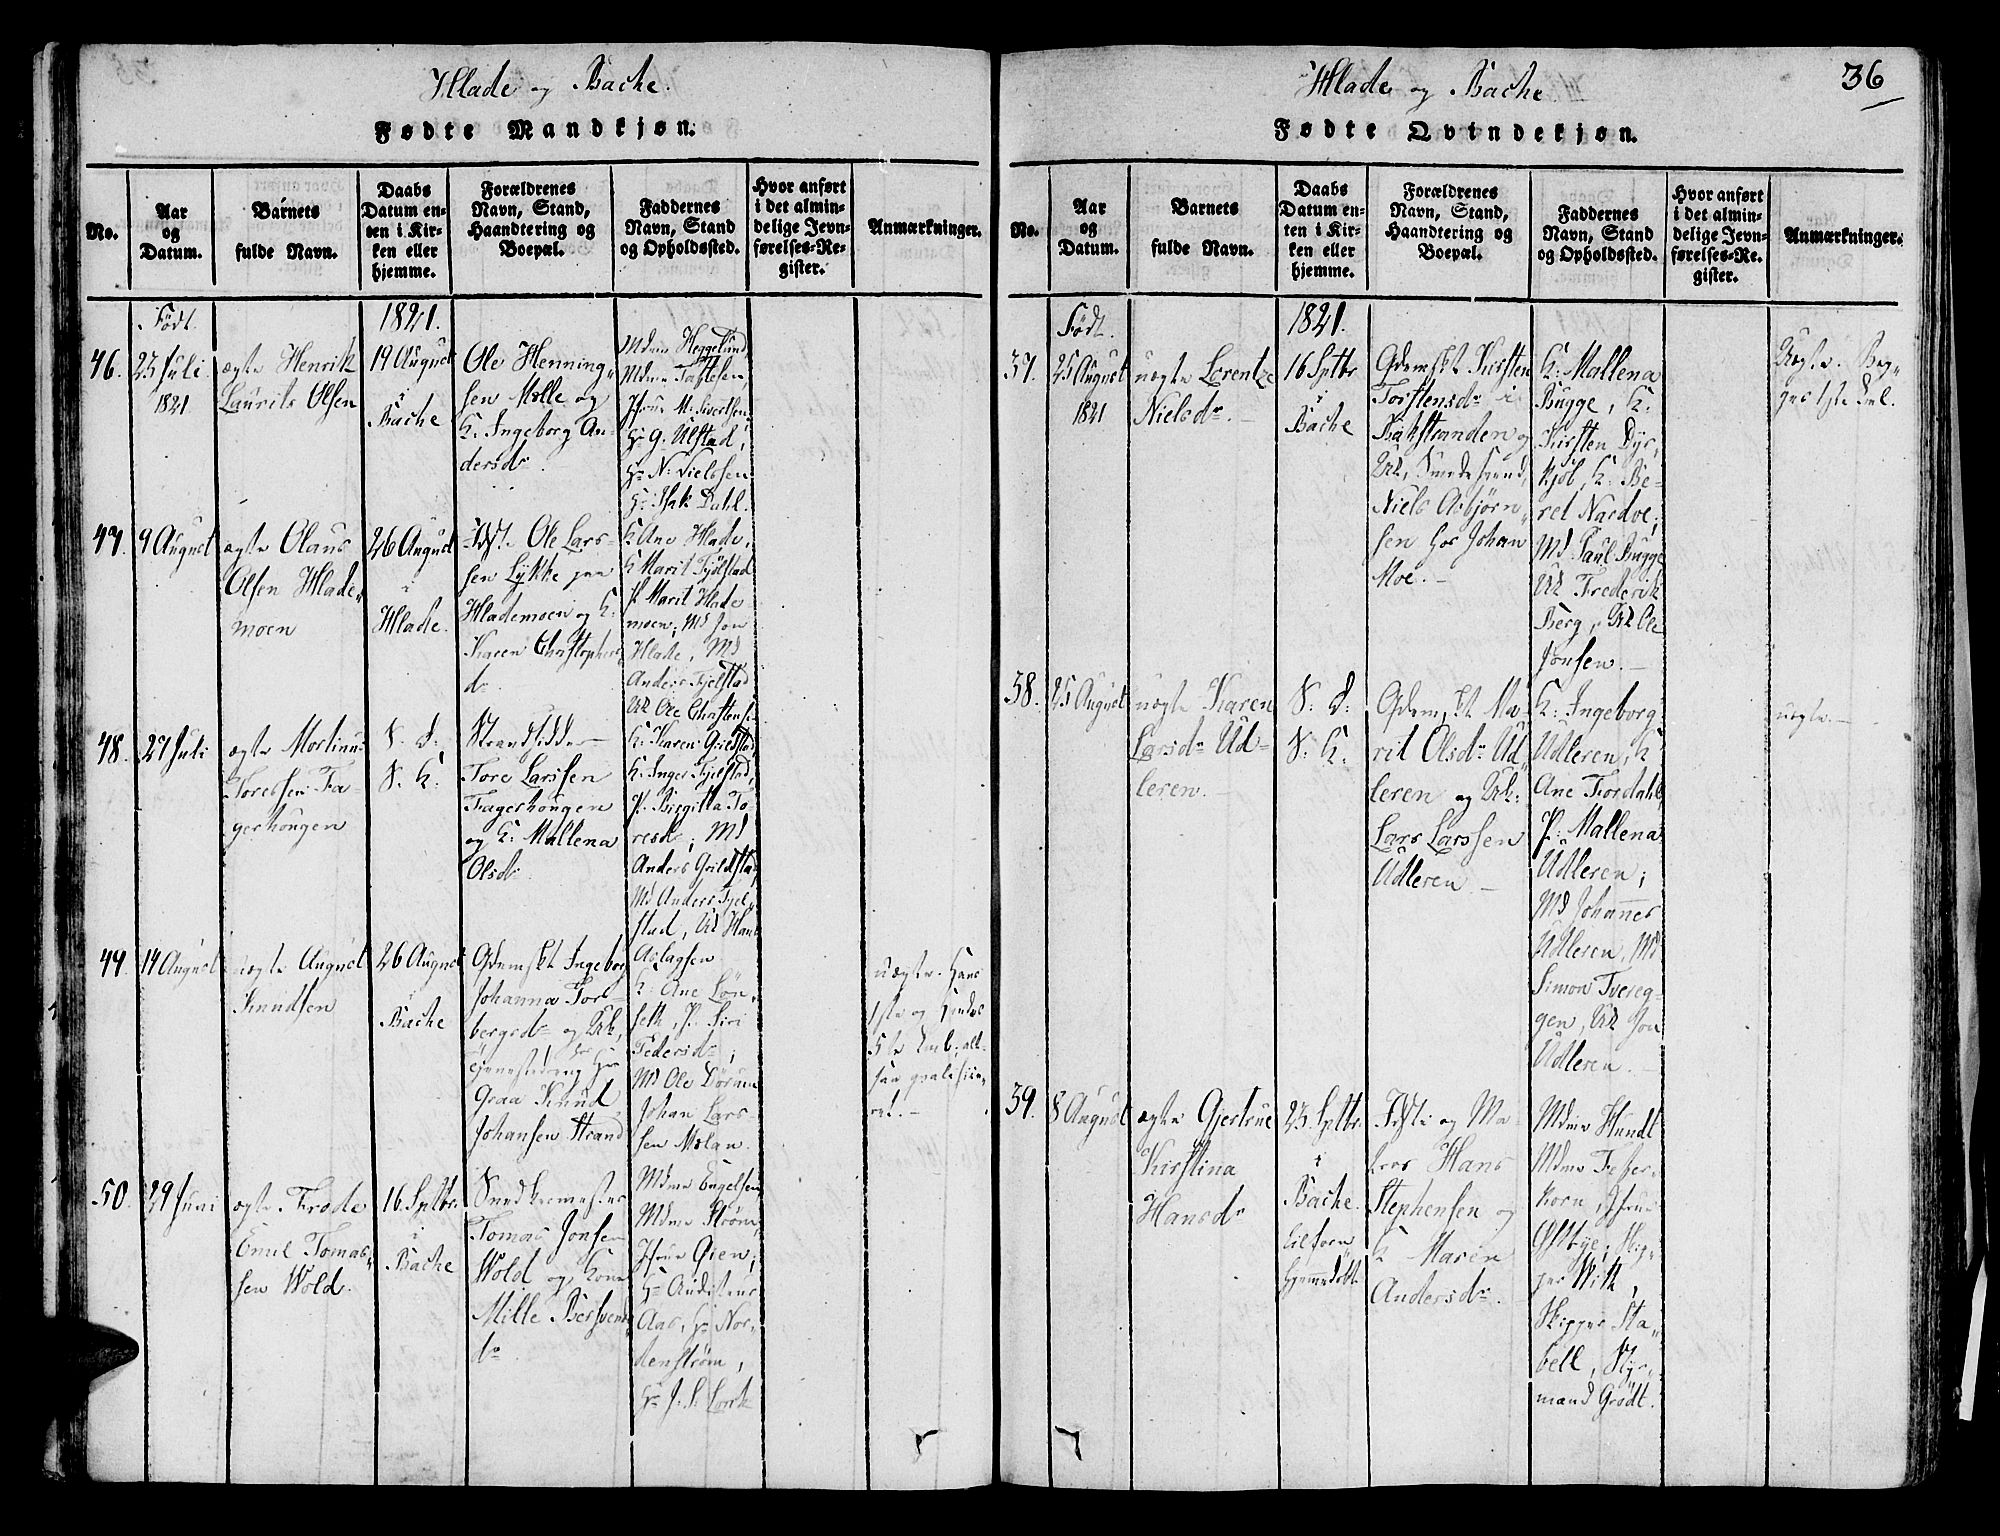 Hlade og Bache.
Fødte Mandkjøn.
No.
Aar
og
Datum.
Barnets
fulde Navn.
Daabs
Datum en-
ten i Kir-
ken eller
hjemme.
Forældrenes
Navn, Stand,
Haandtering og
Boepæl.
Faddernes
Navn, Stand
og Opholdssted.
Hvor anført
i det almin-
delige Jevn-
førelses-Re-
gister.
Anmærkninger.
Født
1821.
46.
23 Juli
1821
ægte Henrik
Laurits Olsen
19 August
i
Bache
Ole Henning-
sen Mølle og
K. Ingeborg An-
dersdr
Mdme Heggelund,
Mdme
Jfrue M. Sivertsen,
Hr G. Ulstad,
Hr N. Nielssen
Hr Isak Dahl.
47.
9 August
ægte Olaus
Olsen Hlade-
moen
26 August
i
Hlade.
Ole Lars-
sen Lykke paa
Hlademoen og K.
Karen Christophers-
dr
K. Ane Hlade,
K Marit Fjølstad
P. Marit Hlade
moen; Md Jon
Hlade, Md
Anders Fjelstad
Uk Ole Christensen
48.
27 Juli
ægte Mortinus
Toressen Fa-
gerhougen
S. D.
S. K.
Strandsidder
Tore Larssen
Fagerhougen
og K. Mallena
Olsdr
K. Karen Grildstad
K. Inger Fjelstad,
P. Birgitta To-
resdr; Md
Anders Grildstad,
Md Anders Fjel-
stad, Uk Hans
Aslagsen
49.
14 August
uægte August
Knudsen
26 August
i
Bache
Gdemskt Ingeborg
Johanna Tor-
bergsdr og Uk,
tjenestedreng hos
Graa Knud
Johansen Strand
K. Ane Løn-
seth, P. Siri
Pedersdr;
Md Ole Dørum
Johan Lars-
sen Mølan.
uægte. Hans
1ste og hendes
5te
50.
29 Juni
ægte Frode
Emil Tomas-
sen Wold.
16 Septbr
i
Bache
Snedkermester
Tomas Jonsen
Wold og Kone
Mille Bersvends-
dr
Mdme Engelsen,
Mdme Strøm,
Jfrue Øien;
Hr Auditeur
Aas, Hr Nor-
denstrøm,
Hr J. S. Lorck
Hlade og Bache
36
Fødte Qvindekjøn.
No.
Aar
og
Datum.
Barnets
fulde Navn.
Daabs
Datum en-
ten i Kir-
ken eller
hjemme.
Forældrenes
Navn, Stand,
Haandtering og
Boepæl.
Faddernes
Navn, Stand
og Opholdssted.
Hvor anført
i det almin-
delige Jevn-
førelses-Re-
gister.
Anmærkninger.
Født
1821.
37.
25 August
1821
uægte Lorentze
Nielsdr
16 Septbr
i
Bache
Gdemskt Kirsten
Torstensdr i
Bakstranden og
Uk, Smedesvend
Niels Asbjørn-
sen hos Johan
Moe.
K. Mallena
Bugge, K.
Kirsten Dyr-
kjøb, K. Be-
ret Nardoe;
Md Paul Bugge
Uk Frederik
Berg, Uk Ole
Jonsen.
Uægte. Beg-
ges 1ste
38.
25 August
uægte Karen
Larsdr Ud-
leren.
S. D.
S. K.
Gdemskt Ma-
rit Olsdr Ud-
leren og Uk.
Lars Larssen
Udleren.
K. Ingeborg
Udleren, K
Ane Fordahl
P. Mallena
Udleren;
Md Johannes
Udleren, Md
Simon Tvereg-
gen, Uk Jon
Udleren.
uægte.
39.
8 August
ægte Gjertrue
Kirstina
Hansdr
23 Septbr
i
Bache.
Tilforn
hjemmedøbt
og Ma-
ler Hans
Stephensen og
K Maren
Andersdr.
Mdme Hundt
Mdme Feffer-
korn, Jfrue
Østbye; Skip-
per Wilk,
Skipper Sta-
bell, Styr-
mand Grødt.